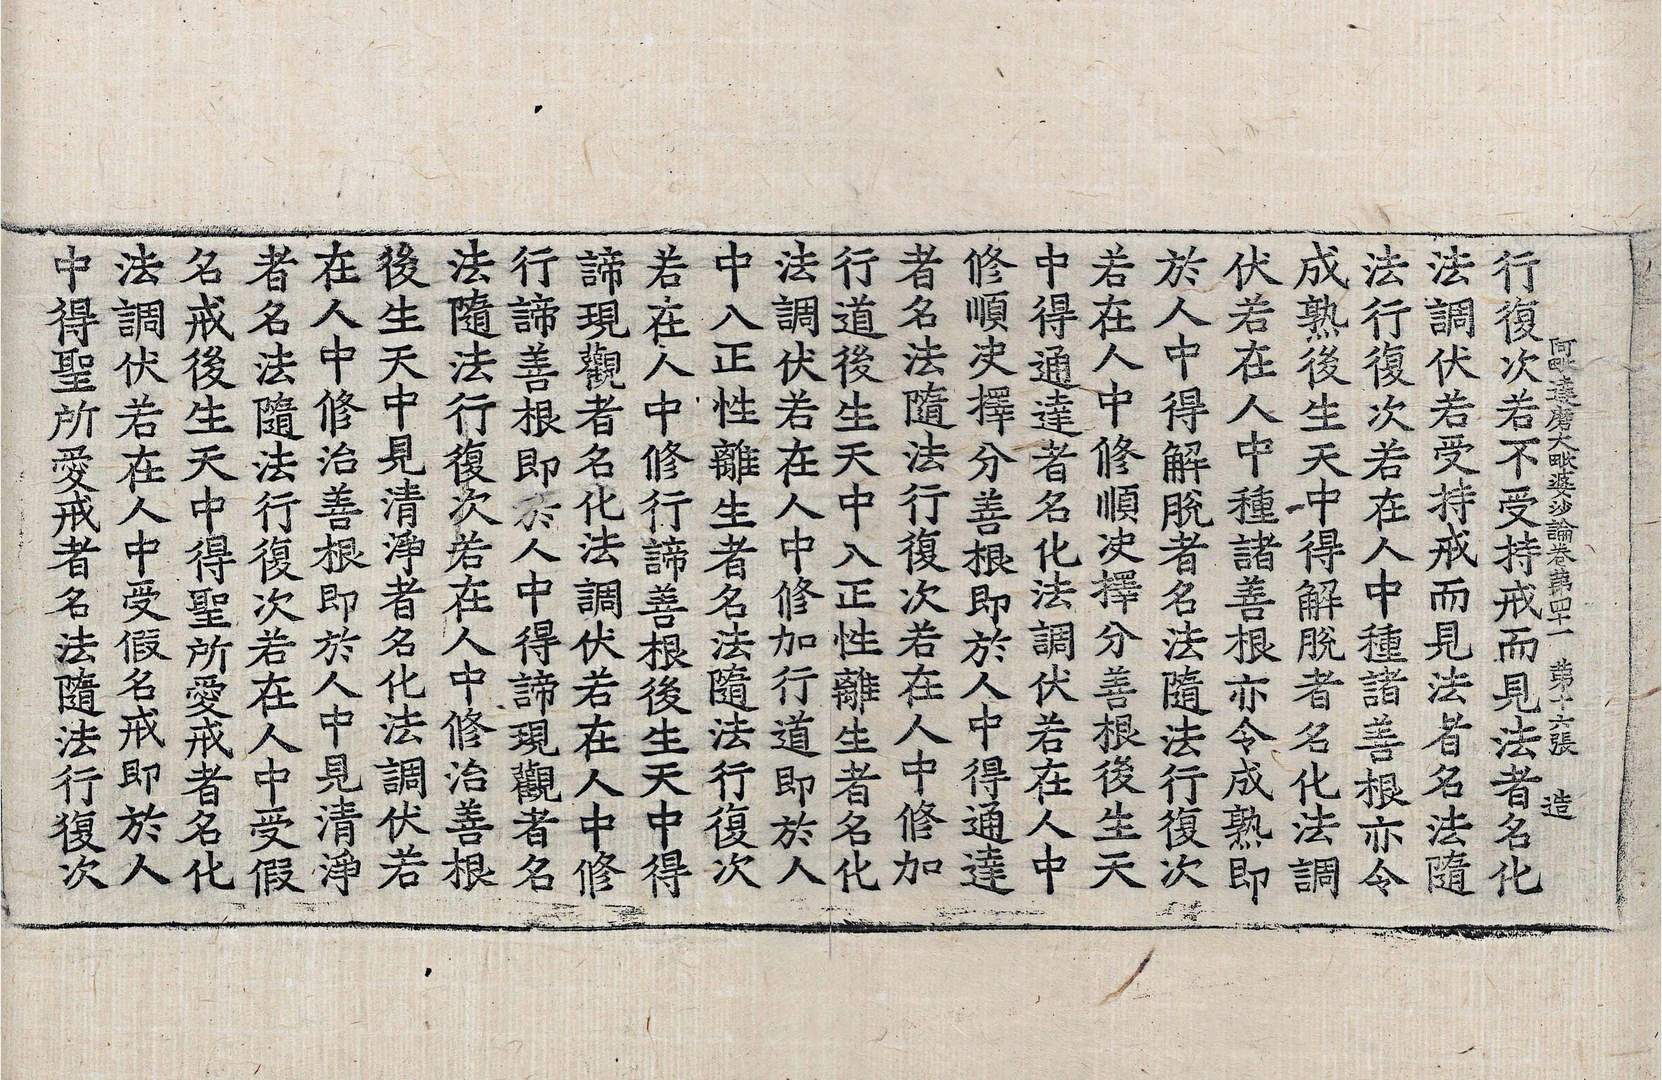 阿毗達磨大毗婆沙論卷苐四十一　苐十六張　造
行復次若不受持戒而見法者名化
法調伏若受持戒而見法者名法隨
法行復次若在人中種諸善根亦令
成熟後生天中得解脫者名化法調
伏若在人中種諸善根亦令成熟即
於人中得解脫者名法隨法行復次
若在人中修順决擇分善根後生天
中得通達者名化法調伏若在人中
修順决擇分善根即於人中得通達
者名法隨法行復次若在人中修加
行道後生天中入正性離生者名化
法調伏若在人中修加行道即於人
中入正性離生者名法隨法行復次
若在人中修行諦善根後生天中得
諦現觀者名化法調伏若在人中修
行諦善根即於人中得諦現觀者名
法隨法行復次若在人中修治善根
後生天中見清淨者名化法調伏若
在人中修治善根即於人中見清淨
者名法隨法行復次若在人中受假
名戒後生天中得聖所愛戒者名化
法調伏若在人中受假名戒即於人
中得聖所愛戒者名法隨法行復次